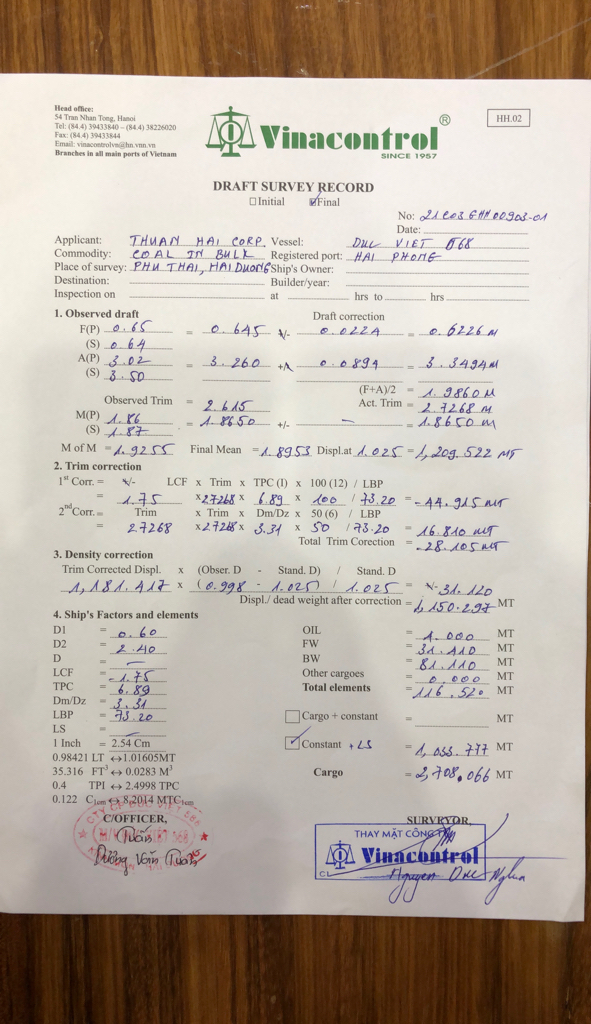 Head office:
54 Tran Nhan Tong, Hanoi
Tel: (84.4) 39433840 – (84.4) 38226020
Fax: (84.4) 39433844
Email: vinacontrolvn@hn.vnn.vn
Branches in all main ports of Vietnam
Vinacontrol ®
SINCE 1957
HH.02
DRAFT SURVEY RECORD
☐ Initial ☑ Final
No: 21C03GHH00903-01
Date:
Applicant: THUAN HAI CORP. Vessel: DUC VIET 568
Commodity: COAL IN BULK Registered port: HAI PHONG
Place of survey: PHU THAI, HAI DUONG Ship's Owner:
Destination: Builder/year:
Inspection on at hrs to hrs
1. Observed draft Draft correction
F(P) 0.65 = 0.645 +/- 0.0224 = 0.6226 M
(S) 0.64
A(P) 3.02 = 3.260 +/- 0.0894 = 3.3494 M
(S) 3.50
(F+A)/2 = 1.9860 M
Observed Trim = 2.615 Act. Trim = 2.7268 M
M(P) 1.86 = 1.8650 +/- — = 1.8650 M
(S) 1.87
M of M = 1.9255 Final Mean = 1.8953 Displ.at 1.025 = 1,209.522 MT
2. Trim correction
1st Corr. = +/- LCF x Trim x TPC (I) x 100 (12) / LBP
= 1.75 x 2.7268 x 6.89 x 100 / 73.20 = -44.915 MT
2nd Corr. = Trim x Trim x Dm/Dz x 50 (6) / LBP
= 2.7268 x 2.7268 x 3.31 x 50 / 73.20 = 16.810 MT
Total Trim Corection = -28.105 MT
3. Density correction
Trim Corrected Displ. x (Obser. D - Stand. D) / Stand. D
1,181.417 x (0.998 - 1.025) / 1.025 = +/- 31.120
Displ./ dead weight after correction = 1,150.297 MT
4. Ship's Factors and elements
D1 = 0.60
D2 = 2.40
D = —
LCF = -1.75
TPC = 6.89
Dm/Dz = 3.31
LBP = 73.20
LS = —
1 Inch = 2.54 Cm
0.98421 LT ↔ 1.01605MT
35.316 FT³ ↔ 0.0283 M³
0.4 TPI ↔ 2.4998 TPC
0.122 C1cm ↔ 8.2014 MTC1cm
OIL = 4.000 MT
FW = 31.410 MT
BW = 81.110 MT
Other cargoes = 0.000 MT
Total elements = 116.520 MT
☐ Cargo + constant = MT
☑ Constant + LS = 1,033.777 MT
Cargo = 2,708.066 MT
C/OFFICER,
Tuấn
Dương Văn Tuấn
SURVEYOR,
THAY MẶT CÔNG TY
Vinacontrol
Nguyen Duc Nghia